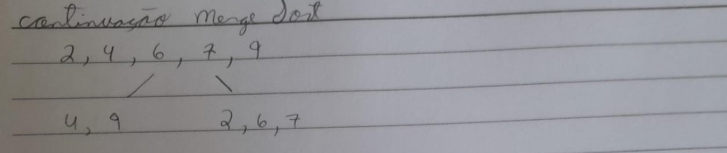 continuação Merge Sort
2, 4, 6, 7, 9
4, 9 2, 6, 7